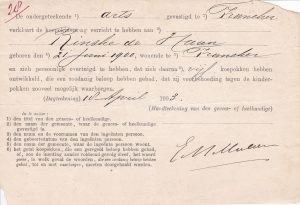 De ondergeteekende ¹) arts gevestigd, te ²) Franeker
verklaart de koepokinenting verricht te hebben aan ³)
Rinske de Haan
geboren den ⁴) 21 Juni 1900, wonende te ⁵) Franeker
en zich persoonlijk overtuigd te hebben, dat zich daarna ⁶) vijf koepokken hebben
ontwikkeld, die een zoodanig beloop hebben gehad, dat zij voorbehoeding tegen de kinder-
pokken zooveel mogelijk waarborgen.
(Dagteekening) 10 April 1903.
(Handteekening van den genees- of heelkundige)
In te vullen:
1) den titel van den genees- of heelkundige.
2) den naam der gemeente, waar de genees- of heelkundige
gevestigd is.
3) den naam en de voornamen van den ingeënten persoon.
4) den geboortedatum van den ingeënten persoon.
5) den naam der gemeente, waar de ingeënte persoon woont.
6) het getal koepokken, die een geregeld beloop hebben gehad,
of, zoo de inenting zonder voldoend gevolg bleef, het woord
geen; in welk geval de woorden, die een zoodanig beloop hebben
gehad, tot en met waarborgen, moeten doorgehaald worden.